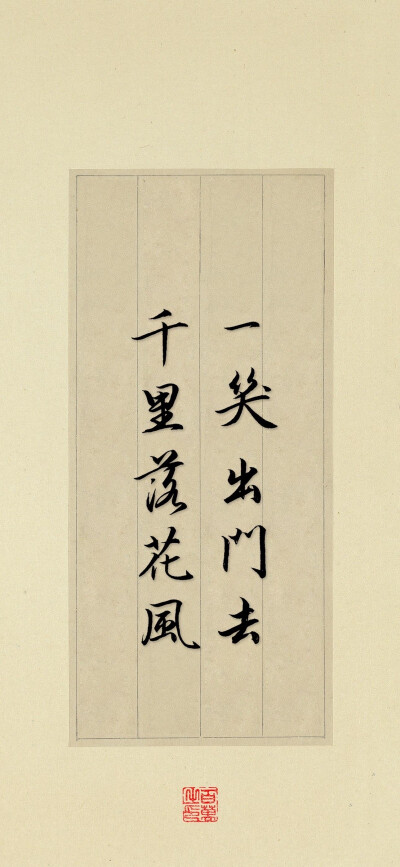 一笑出門去
千里落花風